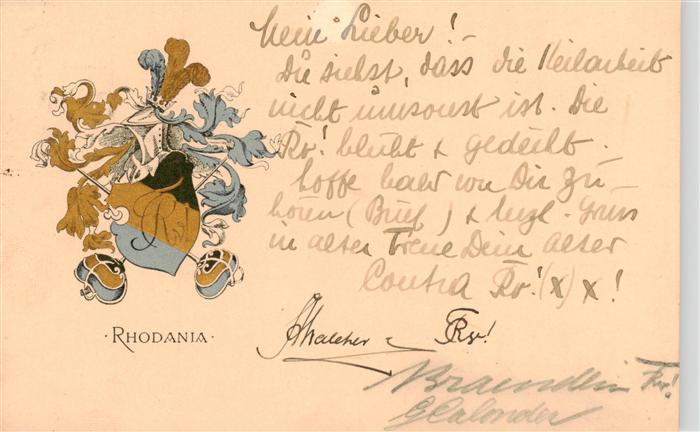 Mein Lieber! -
Du siehst, dass die Keilarbeit
nicht umsonst ist. Die
Rv! blüht & gedeiht.
hoffe bald von Dir zu
hören (Brief) & herzl. Gruss
in alter Treue Dein alter
Contra Rv! (x) x!
Rv!
Rv!
G Calonder
· RHODANIA ·